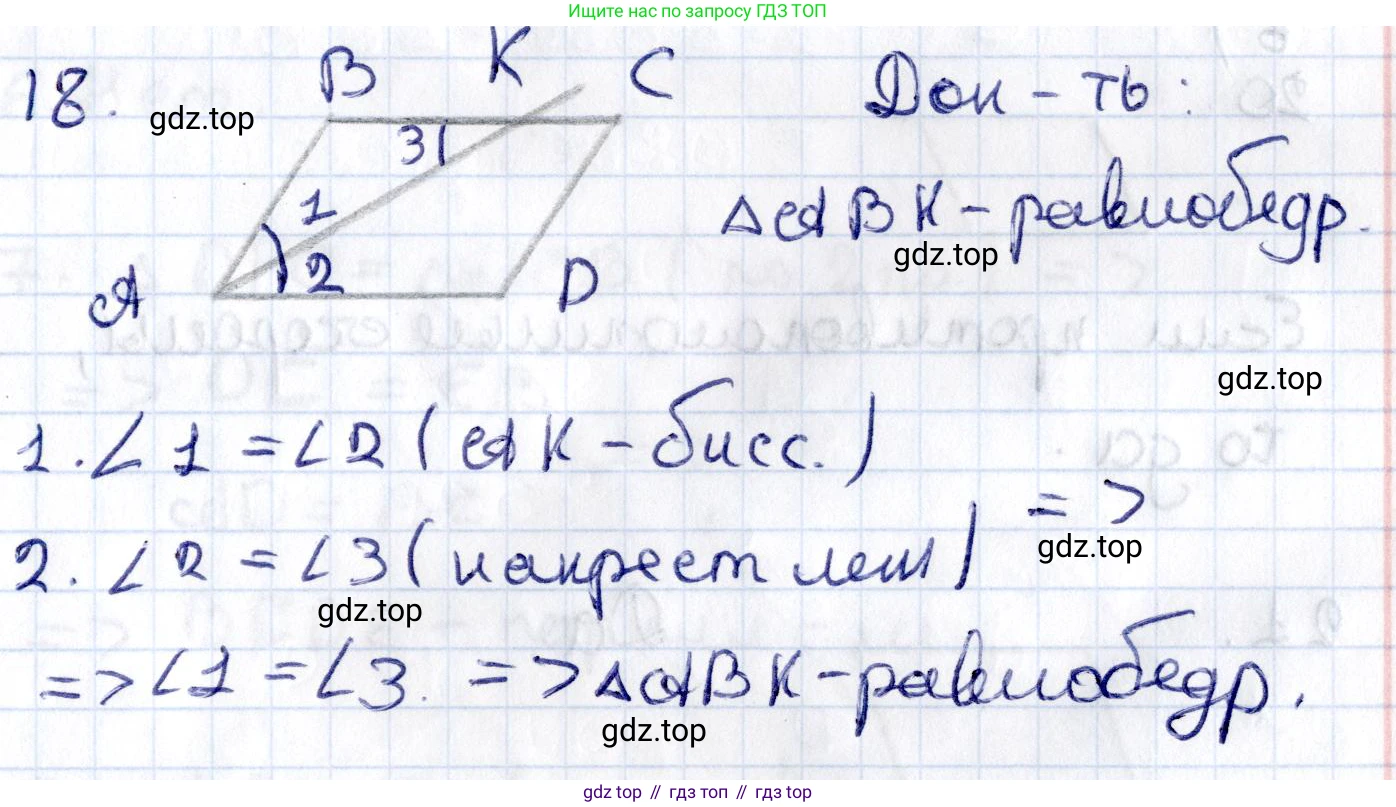 Ищите нас по запросу ГДЗ ТОП
18.
B K C
Док-ть:
gdz.top
3
1
ΔABK - равнобедр.
gdz.top
2
A
D
gdz.top
1. ∠1 = ∠2 (AK - бисс.)
=>
2. ∠2 = ∠3 (накрест леж)
gdz.top
gdz.top
=> ∠1 = ∠3. => ΔABK - равнобедр.
gdz.top
gdz top // гдз топ // gdz top